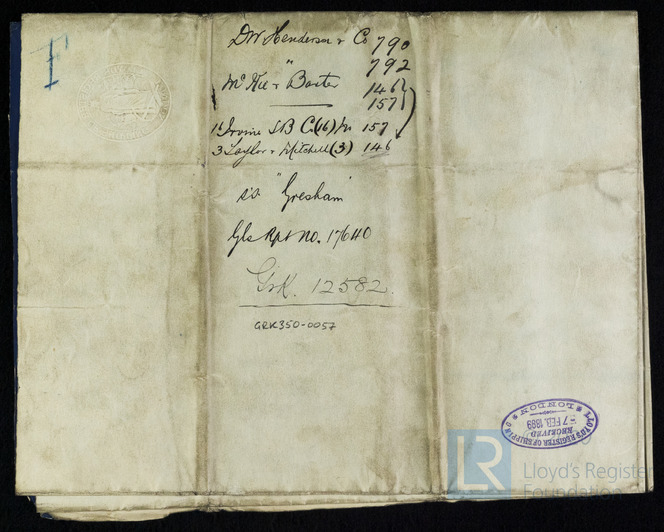 F
D W Henderson & Co 790
" 792
McKie & Baxter 146
157
1 Irvine S B Co (16) 157
3 Taylor & Mitchell (3) 146
s.s. "Gresham"
Gls Rpt no. 17640
Grk. 12582.
GRK350-0057
LLOYD'S REGISTER OF SHIPPING
RECEIVED
7 FEB. 1899
LONDON
LR
Lloyd's Register
Foundation